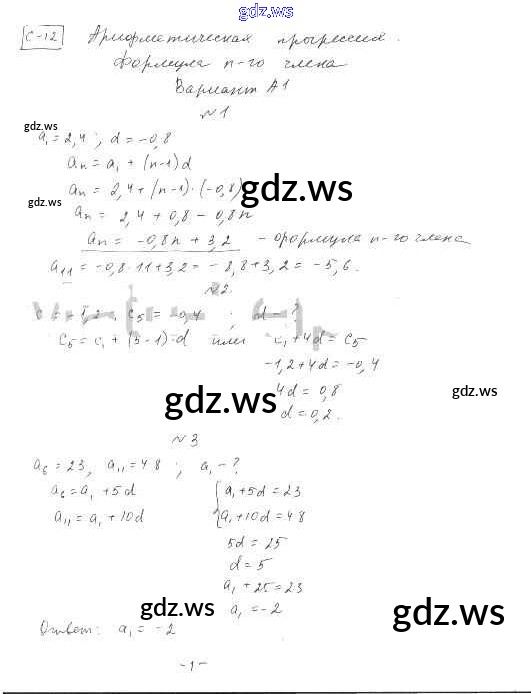 gdz.ws
С-12 Арифметическая прогрессия.
Формула n-го члена
Вариант А1
№1
gdz.ws
a₁ = 2,4 ; d = -0,8
aₙ = a₁ + (n-1)d
aₙ = 2,4 + (n-1)·(-0,8)
gdz.ws
gdz.ws
aₙ = 2,4 + 0,8 - 0,8n
aₙ = -0,8n + 3,2 - формула n-го члена
a₁₁ = -0,8·11+3,2 = -8,8+3,2 = -5,6.
№2.
c₁ = -1,2, c₅ = -0,4 ; d - ?
c₅ = c₁ + (5-1)·d или c₁+4d = c₅
-1,2+4d = -0,4
4d = 0,8
gdz.ws
gdz.ws
d = 0,2.
№3
a₆ = 23, a₁₁ = 48 ; a₁ - ?
a₆ = a₁ + 5d
a₁₁ = a₁ + 10d
{a₁+5d = 23
a₁+10d = 48
5d = 25
d = 5
a₁ + 25 = 23
a₁ = -2
gdz.ws
gdz.ws
Ответ: a₁ = -2
-1-